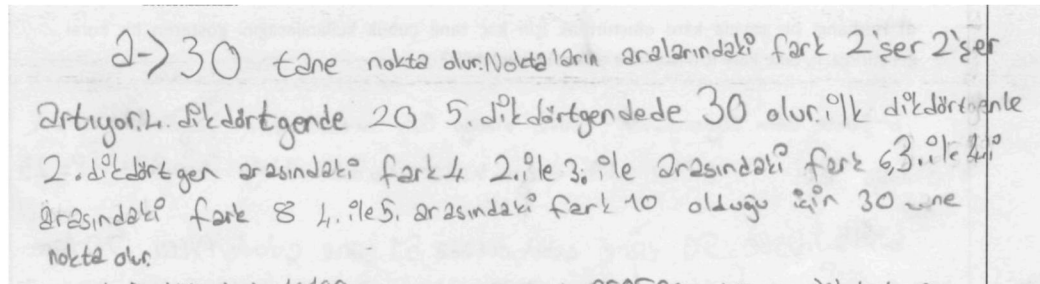 a-) 30 tane nokta olur.Noktaların aralarındaki fark 2şer 2şer
artıyor.4. dikdörtgende 20 5. dikdörtgendede 30 olur.ilk dikdörtgenle
2. dikdörtgen arasındaki fark 4 2. ile 3. ile arasındaki fark 6,3. ile 4.
arasındaki fark 8 4. ile 5. arasındaki fark 10 olduğu için 30 tane
nokta olur.